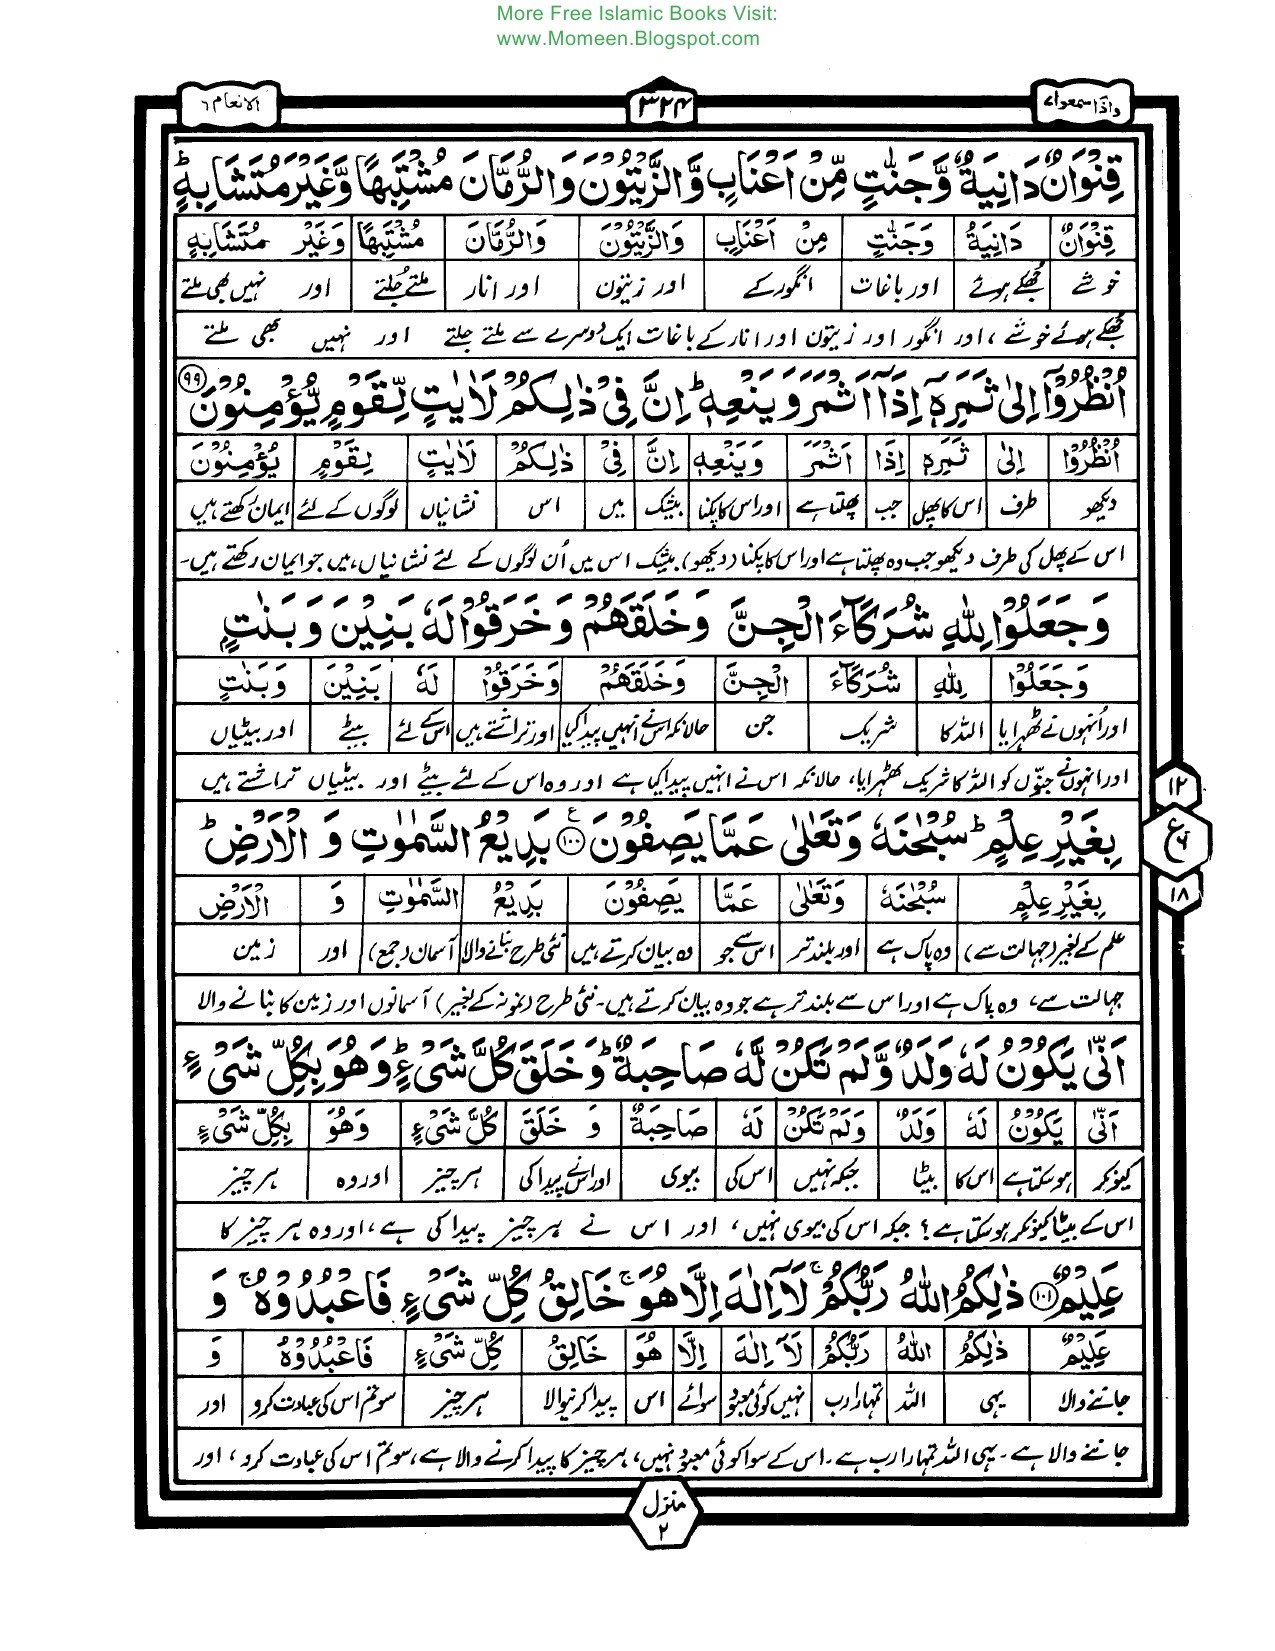 More Free Islamic Books Visit:
www.Momeen.Blogspot.com
واذا سمعوا ٧
٣٢٤
الانعام ٦
قِنْوَانٌ دَانِيَةٌ وَّجَنّٰتٍ مِّنْ اَعْنَابٍ وَّالزَّيْتُوْنَ وَالرُّمَّانَ مُشْتَبِهًا وَّغَيْرَ مُتَشَابِهٍ ؕ
قِنْوَانٌ دَانِيَةٌ وَجَنّٰتٍ مِنْ اَعْنَابٍ وَالزَّيْتُوْنَ وَالرُّمَّانَ مُشْتَبِهًا وَغَيْرَ مُتَشَابِهٍ
خوشے جھکے ہوئے اور باغات انگور کے اور زیتون اور انار ملتے جلتے اور نہیں بھی ملتے
جھکے ہوئے خوشے ، اور انگور اور زیتون اور انار کے باغات ایک دوسرے سے ملتے جلتے اور نہیں بھی ملتے
اُنْظُرُوْۤا اِلٰى ثَمَرِهٖۤ اِذَاۤ اَثْمَرَ وَيَنْعِهٖ ؕ اِنَّ فِىْ ذٰلِكُمْ لَاٰيٰتٍ لِّقَوْمٍ يُّؤْمِنُوْنَ ٩٩
اُنْظُرُوْا اِلٰى ثَمَرِهٖ اِذَا اَثْمَرَ وَيَنْعِهٖ اِنَّ فِىْ ذٰلِكُمْ لَاٰيٰتٍ لِقَوْمٍ يُؤْمِنُوْنَ
دیکھو طرف اس کا پھل جب پھلتا ہے اور اس کا پکنا بیشک میں اس نشانیاں لوگوں کے لئے ایمان رکھتے ہیں
اس کے پھل کی طرف دیکھو جب وہ پھلتا ہے اور اس کا پکنا (دیکھو) بیشک اس میں اُن لوگوں کے لئے نشانیاں ہیں جو ایمان رکھتے ہیں۔
وَجَعَلُوْا لِلّٰهِ شُرَكَآءَ الْجِنَّ وَخَلَقَهُمْ وَخَرَقُوْا لَهٗ بَنِيْنَ وَبَنٰتٍ
وَجَعَلُوْا لِلّٰهِ شُرَكَآءَ الْجِنَّ وَخَلَقَهُمْ وَخَرَقُوْا لَهٗ بَنِيْنَ وَبَنٰتٍ
اور اُنہوں نے ٹھہرایا اللہ کا شریک جن حالانکہ اس نے انہیں پیدا کیا اور تراشتے ہیں اس کے لئے بیٹے اور بیٹیاں
اور انہوں نے جنّوں کو اللہ کا شریک ٹھہرایا، حالانکہ اس نے انہیں پیدا کیا ہے اور وہ اس کے لئے بیٹے اور بیٹیاں تراشتے ہیں
١٢
ع
٦
١٨
بِغَيْرِ عِلْمٍ ؕ سُبْحٰنَهٗ وَتَعٰلٰى عَمَّا يَصِفُوْنَ ١٠٠ ع بَدِيْعُ السَّمٰوٰتِ وَ الْاَرْضِ ؕ
بِغَيْرِ عِلْمٍ سُبْحٰنَهٗ وَتَعٰلٰى عَمَّا يَصِفُوْنَ بَدِيْعُ السَّمٰوٰتِ وَ الْاَرْضِ
علم کے بغیر (جہالت سے) وہ پاک ہے اور بلند تر اس سے جو وہ بیان کرتے ہیں نئی طرح بنانے والا آسمان (جمع) اور زمین
جہالت سے، وہ پاک ہے اور اس سے بلند تر ہے جو وہ بیان کرتے ہیں۔ نئی طرح (نمونہ کے بغیر) آسمانوں اور زمین کا بنانے والا
اَنّٰى يَكُوْنُ لَهٗ وَلَدٌ وَّلَمْ تَكُنْ لَّهٗ صَاحِبَةٌ ؕ وَخَلَقَ كُلَّ شَىْءٍ ۚ وَهُوَ بِكُلِّ شَىْءٍ
اَنّٰى يَكُوْنُ لَهٗ وَلَدٌ وَلَمْ تَكُنْ لَهٗ صَاحِبَةٌ وَ خَلَقَ كُلَّ شَىْءٍ وَهُوَ بِكُلِّ شَىْءٍ
کیونکر ہو سکتا ہے اس کا بیٹا جبکہ نہیں اس کی بیوی اور اس نے پیدا کی ہر چیز اور وہ ہر چیز
اس کے بیٹا کیونکر ہو سکتا ہے؟ جبکہ اس کی بیوی نہیں، اور اس نے ہر چیز پیدا کی ہے، اور وہ ہر چیز کا
عَلِيْمٌ ١٠١ ذٰلِكُمُ اللّٰهُ رَبُّكُمْ ۚ لَاۤ اِلٰهَ اِلَّا هُوَ ۚ خَالِقُ كُلِّ شَىْءٍ فَاعْبُدُوْهُ ۚ وَ
عَلِيْمٌ ذٰلِكُمُ اللّٰهُ رَبُّكُمْ لَاۤ اِلٰهَ اِلَّا هُوَ خَالِقُ كُلِّ شَىْءٍ فَاعْبُدُوْهُ وَ
جاننے والا یہی اللہ تمہارا رب نہیں کوئی معبود سوائے اس پیدا کرنیوالا ہر چیز سو تم اس کی عبادت کرو اور
جاننے والا ہے۔ یہی اللہ تمہارا رب ہے۔ اس کے سوا کوئی معبود نہیں، ہر چیز کا پیدا کرنے والا ہے، سو تم اس کی عبادت کرو، اور
منزل
٢